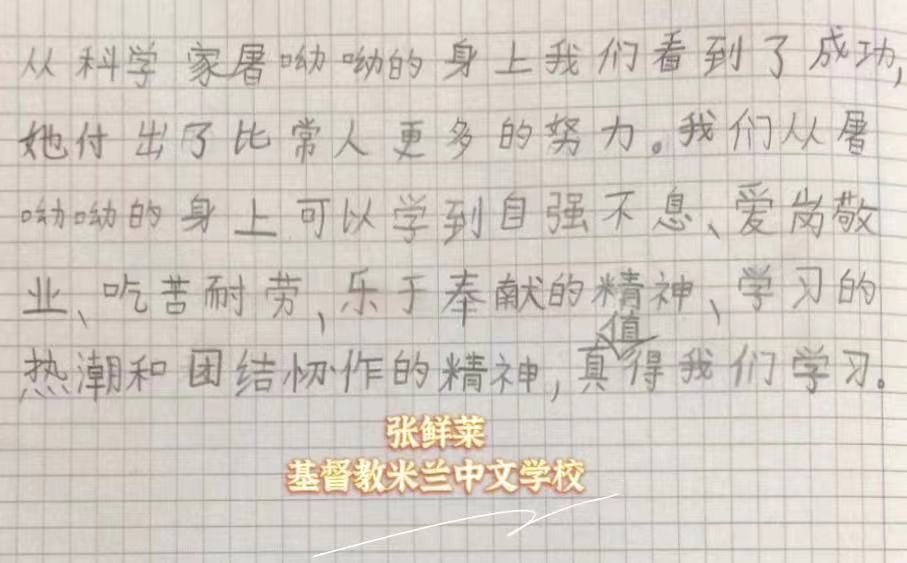 从科学家屠呦呦的身上我们看到了成功,
她付出了比常人更多的努力。我们从屠
呦呦的身上可以学到自强不息、爱岗敬
业、吃苦耐劳、乐于奉献的精神、学习的
热潮和团结协作的精神,真值得我们学习。
张鲜莱
基督教米兰中文学校